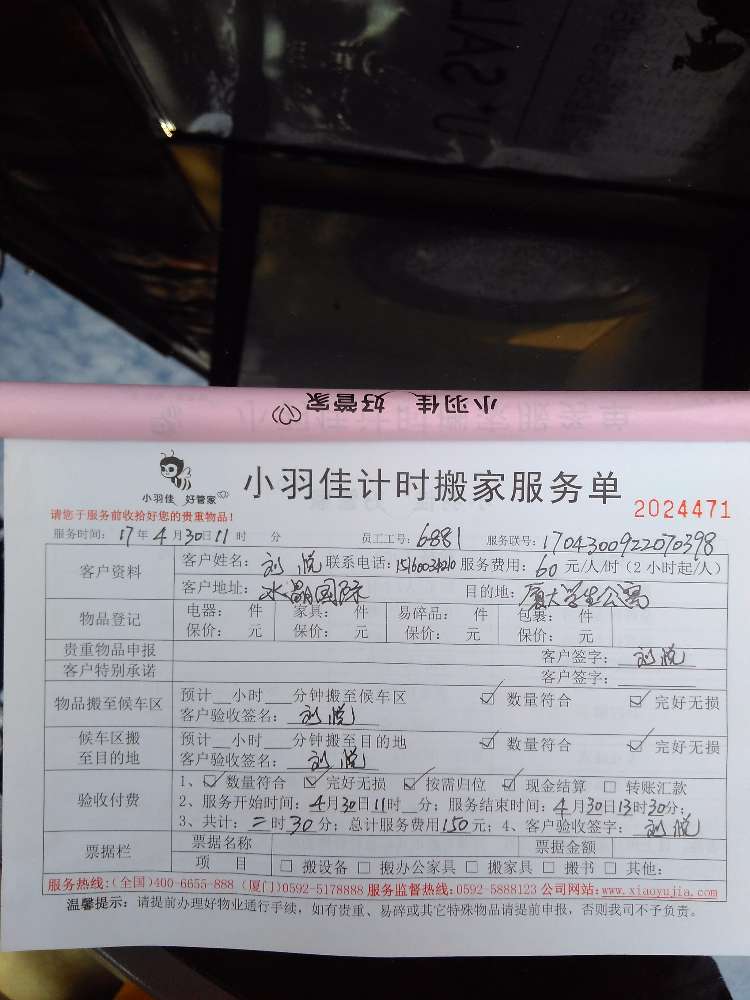 小羽佳 好管家
小羽佳 好管家
小羽佳计时搬家服务单
2024471
请您于服务前收拾好您的贵重物品！
服务时间：17年4月30日11时 分 员工工号：6881 服务联号：1704300922070398
客户资料
客户姓名：刘悦 联系电话： 服务费用：60元/人/时（2小时起/人）
客户地址：水晶国际 目的地：厦大学生公寓
物品登记
电器： 件 家具： 件 易碎品： 件 包裹： 件
保价： 元 保价： 元 保价： 元 保价： 元
贵重物品申报 客户签字：刘悦
客户特别承诺 客户签字：
物品搬至候车区
预计__小时__分钟搬至候车区 ☑数量符合 ☑完好无损
客户验收签名：刘悦
候车区搬至目的地
预计__小时__分钟搬至目的地 ☑数量符合 ☑完好无损
客户验收签名：刘悦
验收付费
1、☑数量符合 ☑完好无损 ☑按需归位 ☑现金结算 □转账汇款
2、服务开始时间：4月30日11时__分；服务结束时间：4月30日13时30分；
3、共计：二时30分；总计服务费用150元；4、客户验收签字：刘悦
票据栏
票据名称 票据金额
项 目 □搬设备 □搬办公家具 □搬家具 □搬书 □其他：
服务热线：(全国)400-6655-888 (厦门)0592-5178888 服务监督热线：0592-5888123 公司网站：www.xiaoyujia.com
温馨提示：请提前办理好物业通行手续，如有贵重、易碎或其它特殊物品请提前申报，否则我司不予负责。